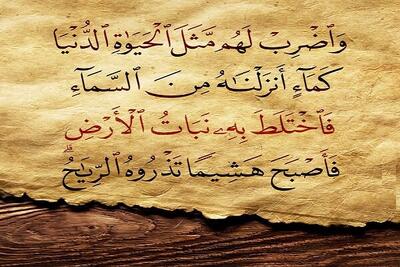 وَٱضْرِبْ لَهُم مَّثَلَ ٱلْحَيَوٰةِ ٱلدُّنْيَا
كَمَآءٍ أَنزَلْنَٰهُ مِنَ ٱلسَّمَآءِ
فَٱخْتَلَطَ بِهِۦ نَبَاتُ ٱلْأَرْضِ
فَأَصْبَحَ هَشِيمًا تَذْرُوهُ ٱلرِّيَٰحُ ۗ